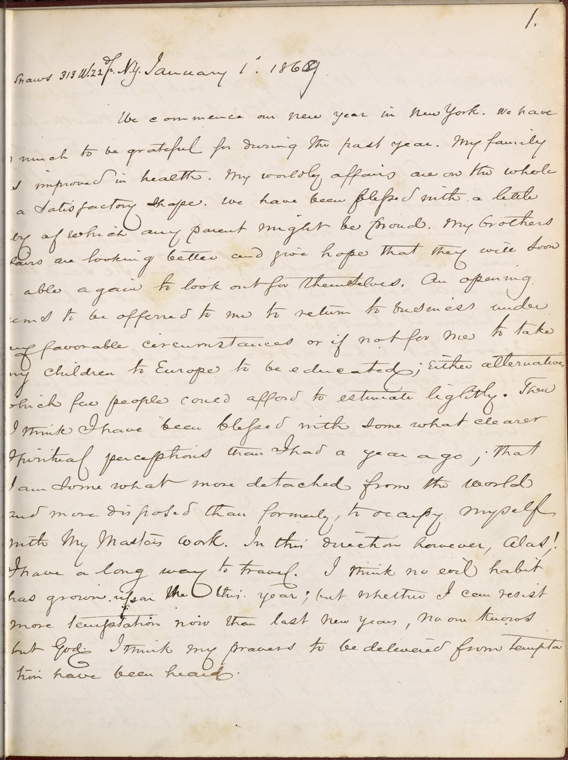 1.
Shaws 313 W. 22d St. N.Y. January 1st. 1869
We commence our new year in New York. We have
much to be grateful for during the past year. My family
is improved in health. My worldly affairs are on the whole
in a satisfactory shape. We have been blessed with a little
boy of which any parent might be proud. My brothers
affairs are looking better and give hope that they will soon
able again to look out for themselves. An opening
seems to be offered to me to return to business under
favorable circumstances or if not for me to take
my children to Europe to be educated; either alternative
which few people could afford to estimate lightly. Then
I think I have been blessed with some what clearer
spiritual perceptions than I had a year ago; that
I am some what more detached from the world
and more disposed than formerly, to occupy myself
with My Masters work. In this direction however, Alas!
I have a long way to travel. I think no evil habit
has grown upon me this year; but whether I can resist
more temptation now than last new years, no one knows
but God. I think my prayers to be delivered from tempta
tion have been heard.